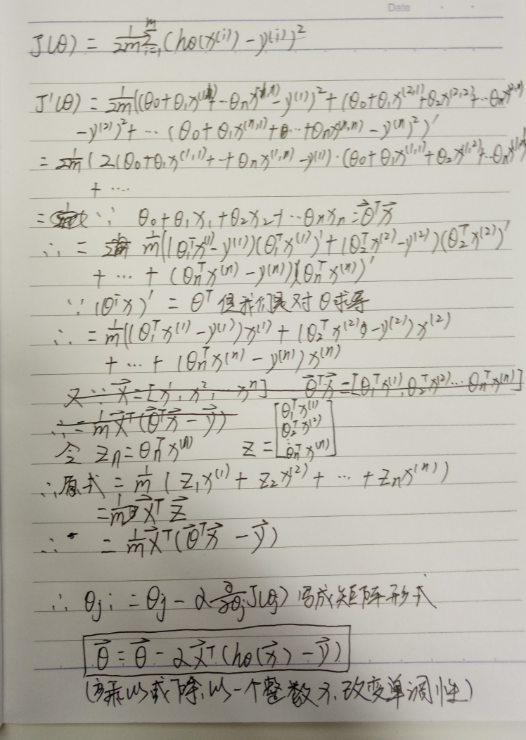 Date
J(θ) = 1/2m Σ^m_{i=1} (hθ(x^(i)) - y^(i))²
J'(θ) = 1/2m ((θ0+θ1x^(1,1)+⋯θnx^(1,n) - y^(1))² + (θ0+θ1x^(2,1)+θ2x^(2,2)+⋯θnx^(2,n)
- y^(2))² + ⋯ (θ0+θ1x^(n,1)+⋯+θnx^(n,n) - y^(n))²)'
= 1/2m (2(θ0+θ1x^(1,1)+⋯+θnx^(1,n) - y^(1))·(θ0+θ1x^(1,1)+θ2x^(1,2)+⋯θnx^(1,n))'
+ ⋯
= ∵ θ0+θ1x1+θ2x2+⋯θnxn = θ^T x
∴ = 1/m ((θ1^T x^(1) - y^(1))(θ1^T x^(1))' + (θ2^T x^(2) - y^(2))(θ2^T x^(2))'
+ ⋯ + (θn^T x^(n) - y^(n))(θn^T x^(n))'
∵ (θ^T x)' = θ^T 但我们是对θ求导
∴ = 1/m ((θ1^T x^(1) - y^(1))x^(1) + (θ2^T x^(2) - y^(2))x^(2)
+ ⋯ + (θn^T x^(n) - y^(n))x^(n)
又∵ x = [x¹, x², ⋯ x^n] θ^T x = [θ1^T x^(1), θ2^T x^(2) ⋯ θn^T x^(n)]
∴ = 1/m x^T (θ^T x - y)
令 zn = θn^T x^(n) z = [θ1^T x^(1) θ2^T x^(2) ⋮ θn^T x^(n)]
∴原式 = 1/m (z1x^(1) + z2x^(2) + ⋯ + znx^(n))
= 1/m x^T z
∴ = 1/m x^T (θ^T x - y)
∴ θj := θj - α ∂/∂θj J(θj) 写成矩阵形式
θ = θ - α x^T (hθ(x) - y)
乘以或除以一个整数不改变单调性)